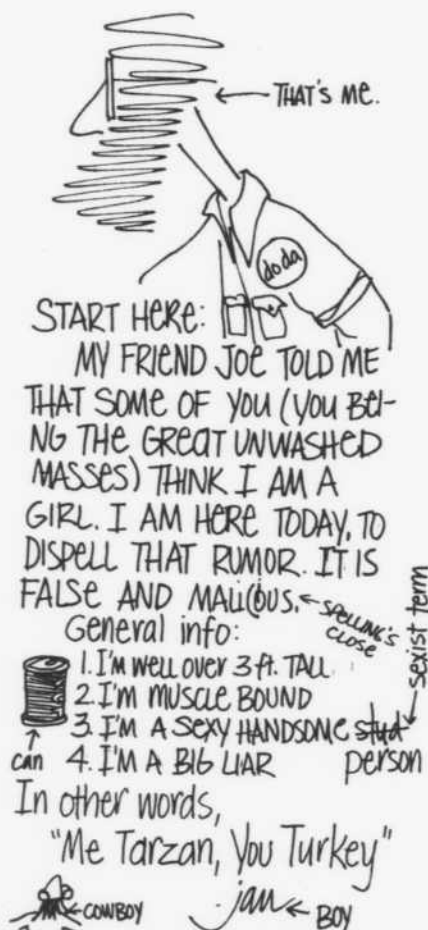 THAT'S ME.
do da
START HERE:
MY FRIEND JOE TOLD ME
THAT SOME OF YOU (YOU BEI-
NG THE GREAT UNWASHED
MASSES) THINK I AM A
GIRL. I AM HERE TODAY, TO
DISPELL THAT RUMOR. IT IS
FALSE AND MALICOUS.
SPELLING'S
CLOSE
General info:
1. I'M WELL OVER 3 ft. TALL
2. I'M MUSCLE BOUND
3. I'M A SEXY HANDSOME stud
sexist term
person
can
4. I'M A BIG LIAR
In other words,
"Me Tarzan, You Turkey"
COWBOY
jan
BOY